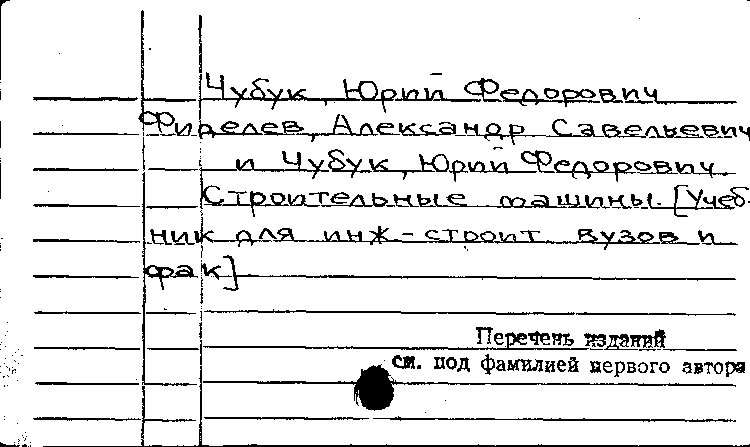 Чубук, Юрий Федорович
Фиделев, Александр Савельевич
и Чубук, Юрий Федорович
Строительные машины. [Учеб-
ник для инж-строит вузов и
фак]
Перечень изданий
см. под фамилией первого автора